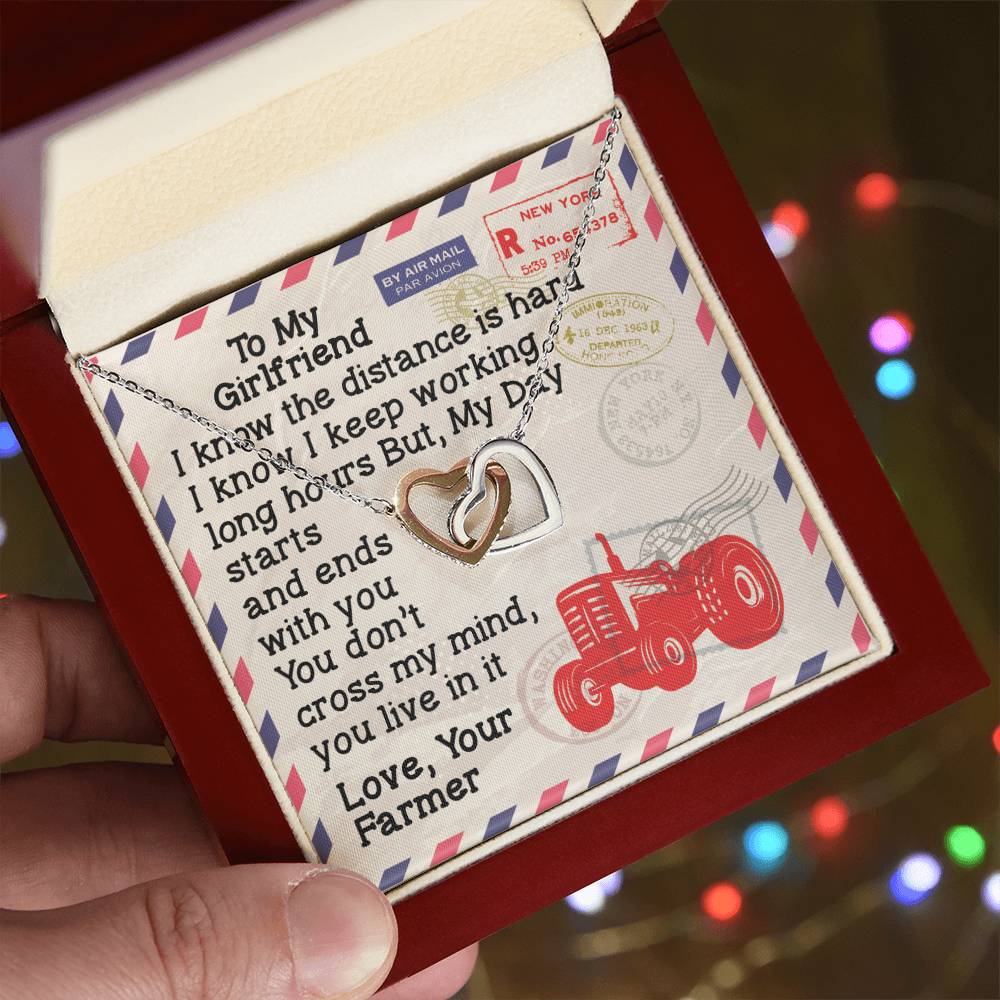 BY AIR MAIL
PAR AVION
NEW YORK
R No. 
5:39 PM
IMMIGRATION
(849)
16 DEC 1963
DEPARTED
To My
Girlfriend
I know the distance is hard
I know I keep working
long hours But, My Day
starts
and ends
with you
You don't
cross my mind,
you live in it
Love, Your
Farmer